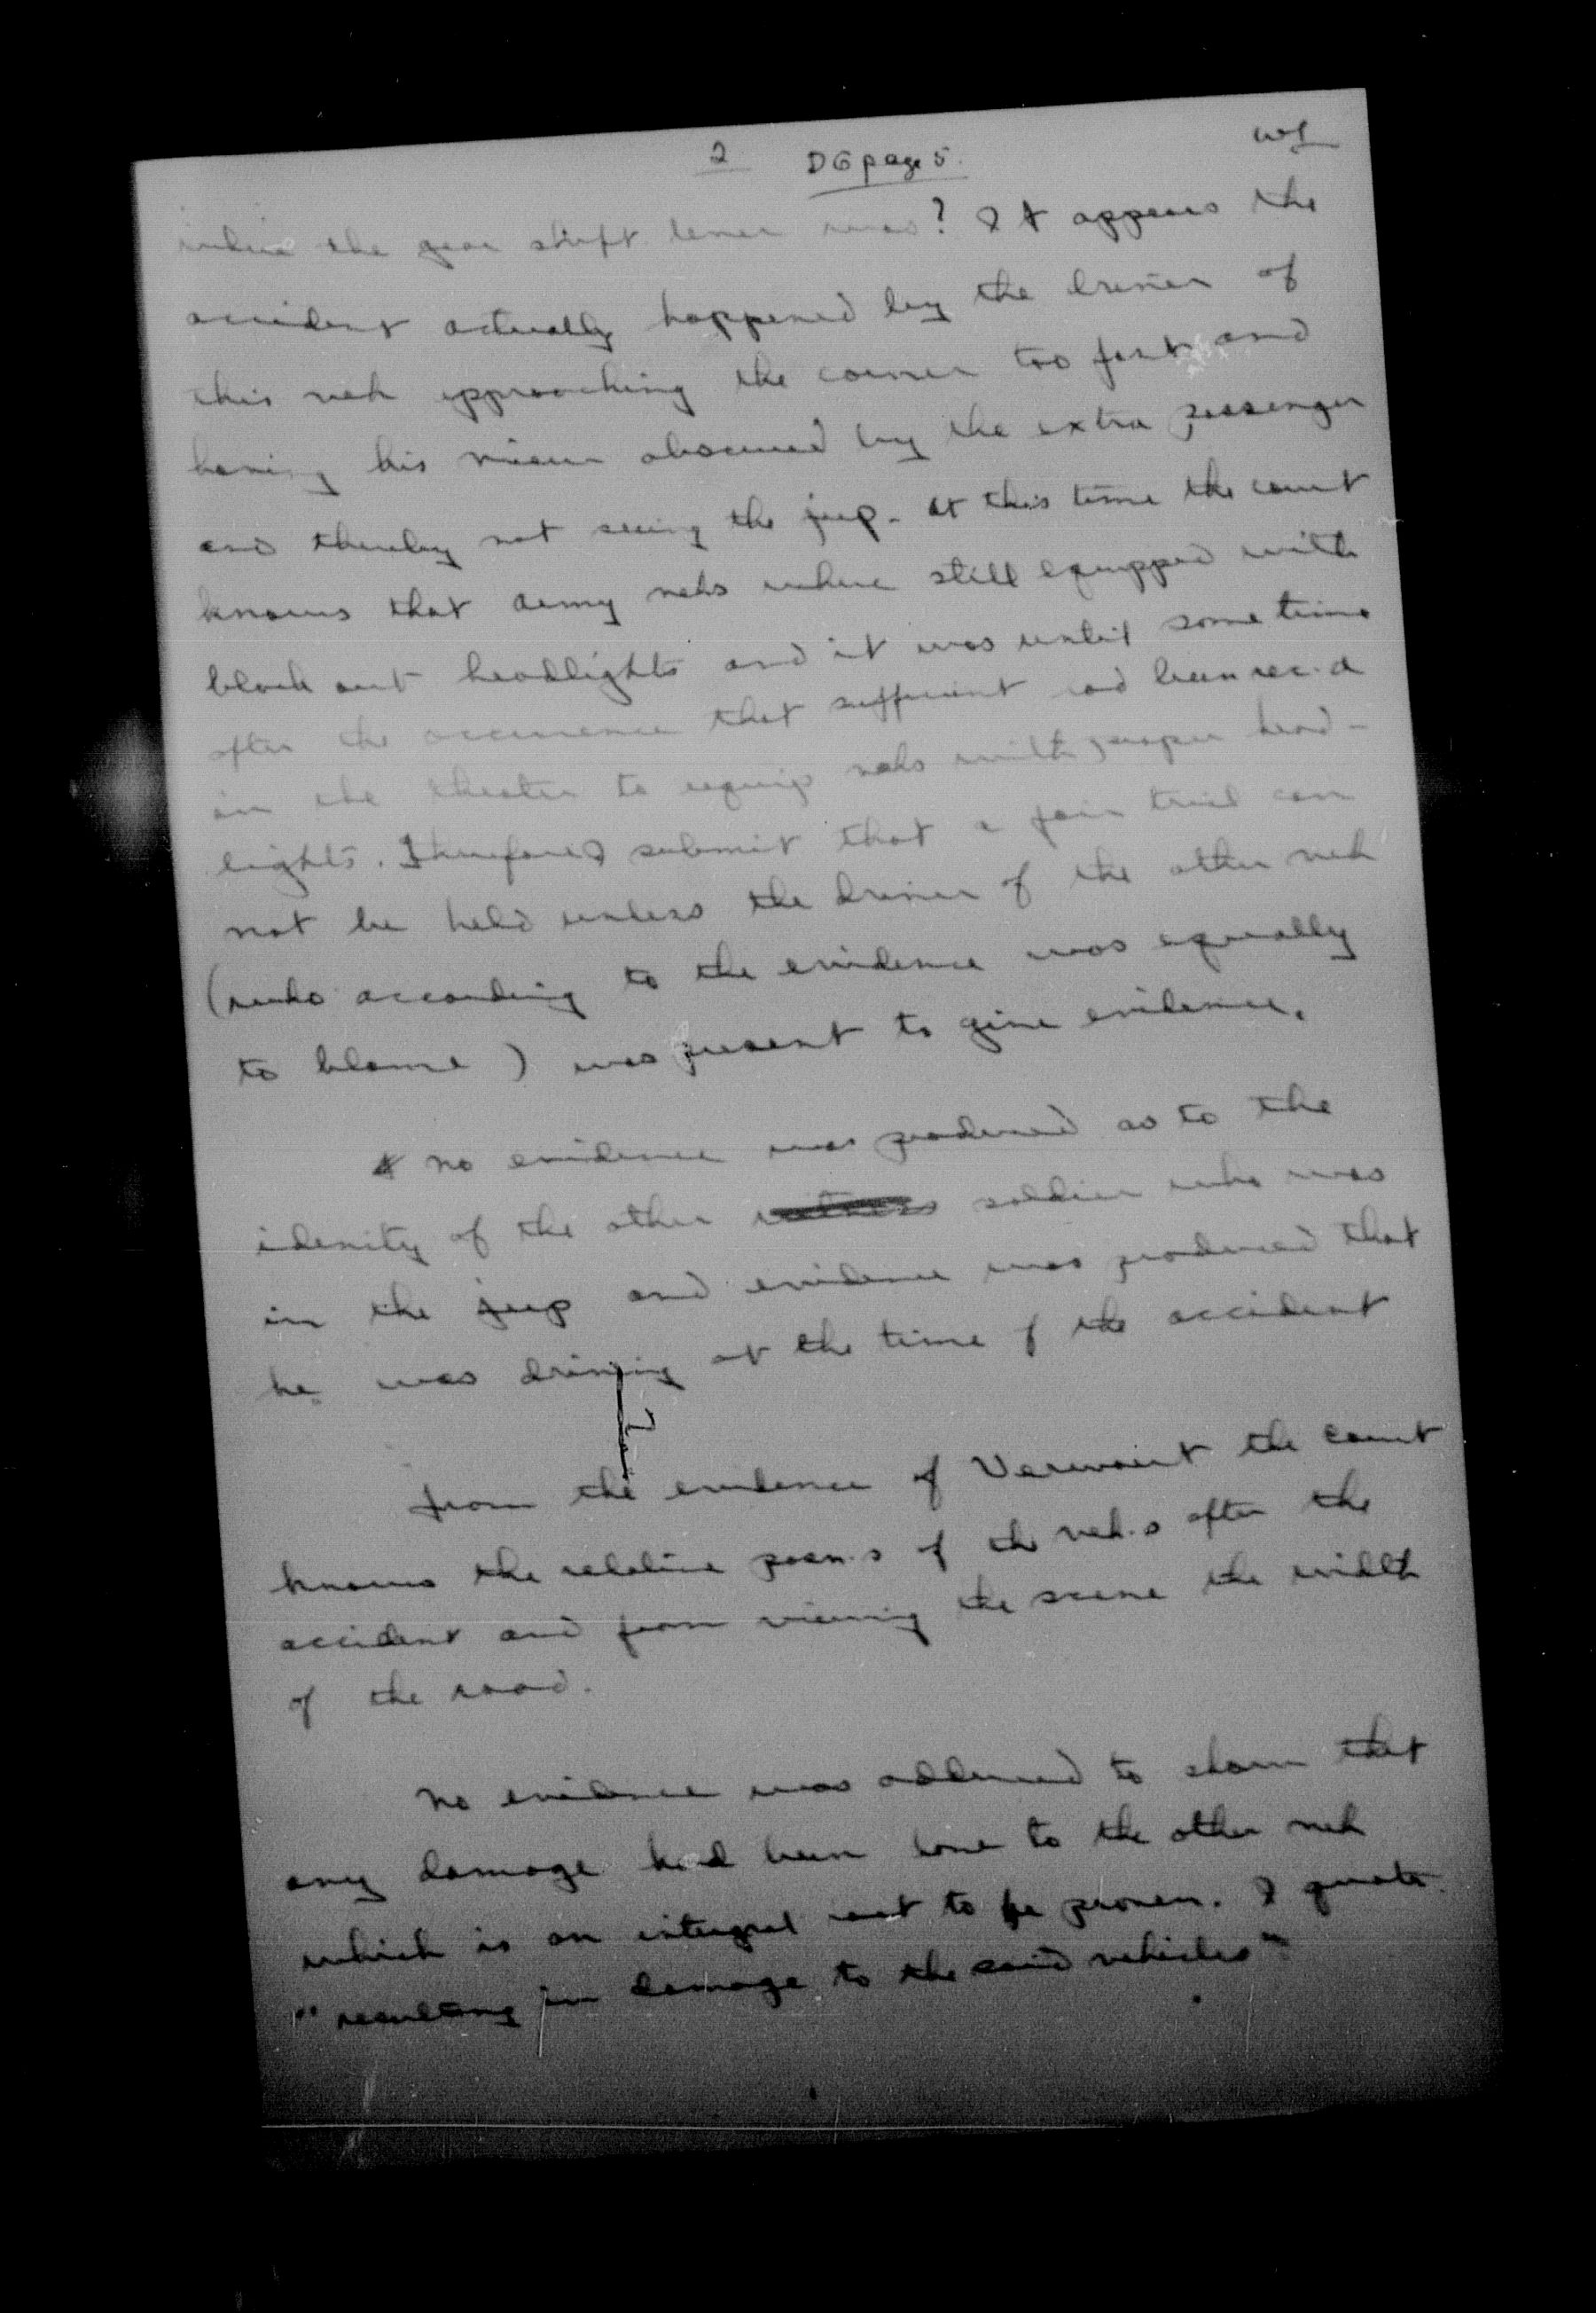 2 DG page 5.
where the gear shift lever was? It appears the
accident actually happened by the driver of
this veh approaching the corner too fast and
having his view obscured by the extra passenger
and thereby not seeing the jeep. At this time the court
knows that army vehs where still equipped with
black out headlights and it was until some time
after the occurrence that sufficient had been rec.d
in the theater to equip vehs with proper head-
lights. Therefore I submit that a fair trial can
not be held unless the driver of the other veh
(who according to the evidence was equally
to blame) was present to give evidence.
No evidence was produced as to the
idenity of the other witness soldier who was
in the jeep and evidence was produced that
he was driving at the time of the accident
From the evidence of Vervoort the court
knows the relative posn.s of the veh.s after the
accident and from viewing the scene the width
of the road.
No evidence was adduced to show that
any damage had been done to the other veh
which is an integral to be proven. I quote
"resulting in damage to the said vehicles"